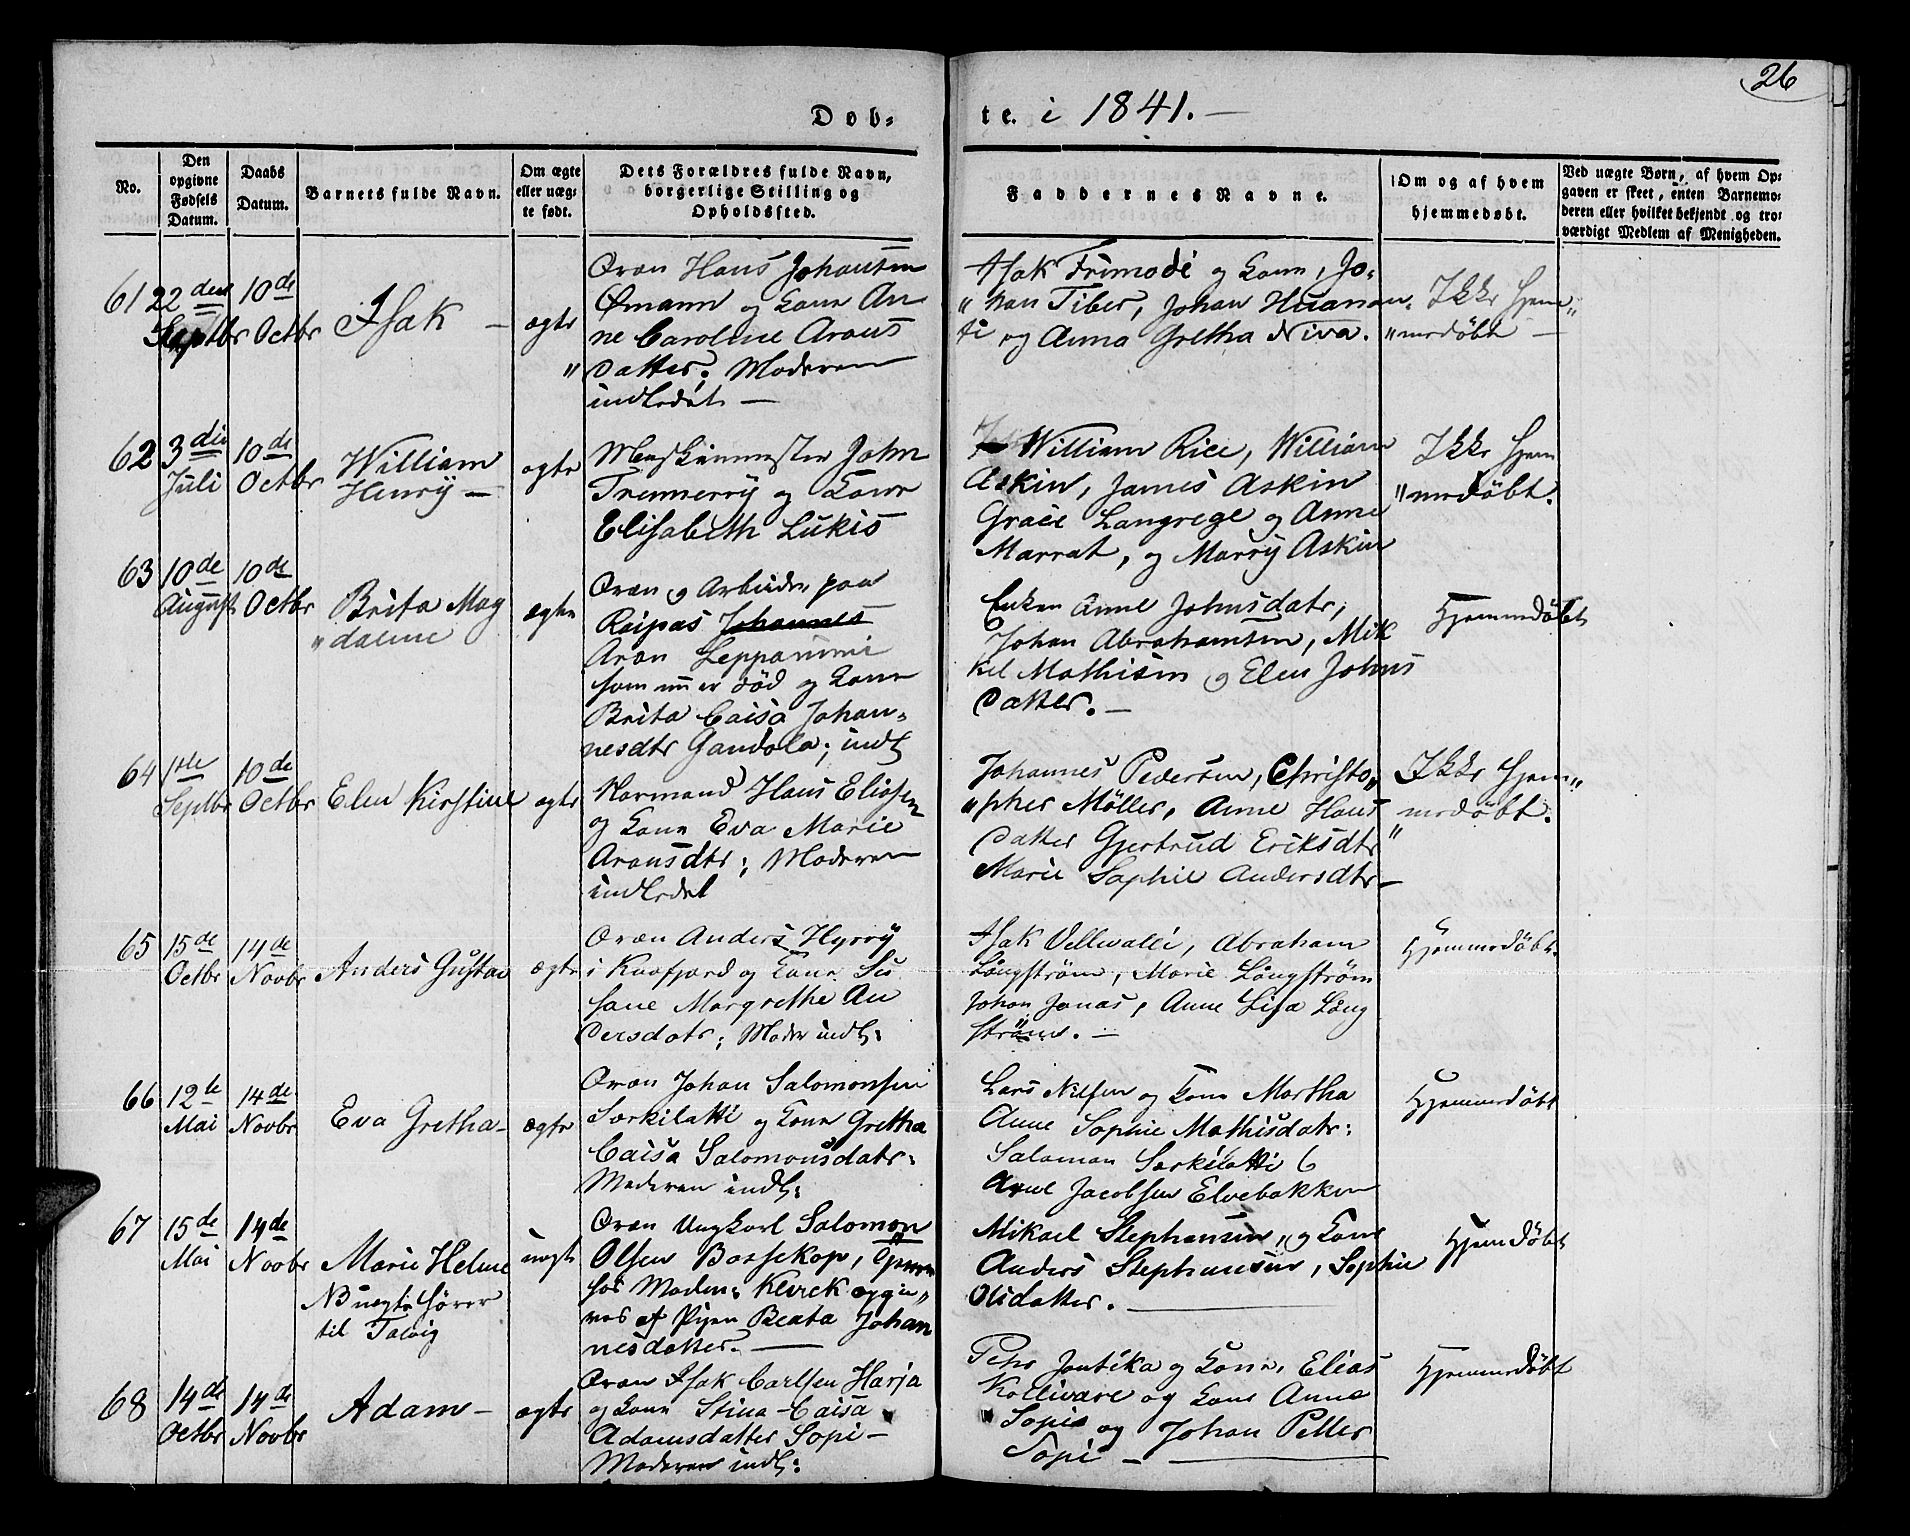 26
Døb-
te. i 1841. —
No.
Den opgivne Fødsels Datum.
Daabs Datum.
Barnets fulde Navn.
Om ægte eller uægte født.
Dets Forældres fulde Navn, borgerlige Stilling og Opholdssted.
Faddernes Navne.
Om og af hvem hjemmedøbt.
Ved uægte Børn, af hvem Opgaven er skeet, enten Barnemoderen eller hvilket bekjendt og troværdigt Medlem af Menigheden.
61
22den
Septbr
10de
Octbr
Isak —
ægte
Qvæn Hans Johansen
Ømann og Kone An
ne Caroline Arons
" datter; Moderen
indledet —
Isak Frimodi og Kone, Jo-
" han Tiber, Johan Huanan-
ti og Anna Gretha Niva.
Ikke Hjem"
" medøbt —
62
3die
Juli
10de
Octbr
William
Henry —
ægte
Maskinmester John
Trennerry og Kone
Elisabeth Lukis
William Rice, William
Askin, James Askin
Grace Langrege og Anne
Marrat, og Marry Askin
Ikke Hjem
" medøbt.
63
10de
August
10de
Octbr
Brita Mag
" dalene
ægte
Qvæn og Arbeider paa
Raipas Johannes
Aron Leppänimi
som nu er død og Kone
Brita Caisa Johan-
nesdtr Gandola; indl
Enken Anne Johnsdatr,
Johan Abrahamsen, Mik
kel Mathisen og Elen Johns
datter. —
Hjemmedøbt
64
1ste
Septbr
10de
Octbr
Elen Kirstine
ægte
Normand Hans Eliasen
og Kone Eva Marie
Aronsdtr; Moderen
indledet
Johannes Pedersen, Christo"
" pher Møller, Anne Hans
datter Gjertrud Eriksdtr
Marie Sophie Andersdtr —
Ikke Hjem"
" medøbt.
65
15de
Octbr
14de
Novbr
Anders Gustav
ægte
Qvæn Anders Hyrry
i Kaafjord og Kone Su
sane Margrethe An
dersdatr; Moder indl:
Isak Vellivalli, Abraham
Långström, Marie Långström
Johan Jonas, Anne Lisa Lång
ström. —
Hjemmedøbt.
66
12te
Mai
14de
Novbr
Eva Gretha —
ægte
Qvæn Johan Salomonsen
Særkilatti og Kone Gretha
Caisa Salomonsdatr:
Moderen indl:
Lars Nilsen og Kone Martha
Anne Sophie Mathisdatr:
Salomon Særkilatti
Arne Jacobsen Elvebakken
Hjemmedøbt
67
15de
Mai
14de
Novbr
Marie Helene
NB uægte hører
til Talvig
uægte
Qvæn Ungkarl Salomon
Olsen Bossekop,
for Moderen: Klerck opgi"
ves af Pigen Beata Johan
nesdatter. —
Mikael Stephansen" og Kone
Anders Stephansen, Sophie
Olsdatter. —
Hjemdøbt
68
14de
Octbr
14de
Novbr
Adam —
ægte
Qvæn Isak Carlsen Harja
og Kone Stina Caisa
Adamsdatter Sopi —
Moderen indl:
Pehr Jontika og Kone, Elias
Kollivare og Kone Anna
" Sopia og Johan Petter
Sopi —
Hjemmedøbt